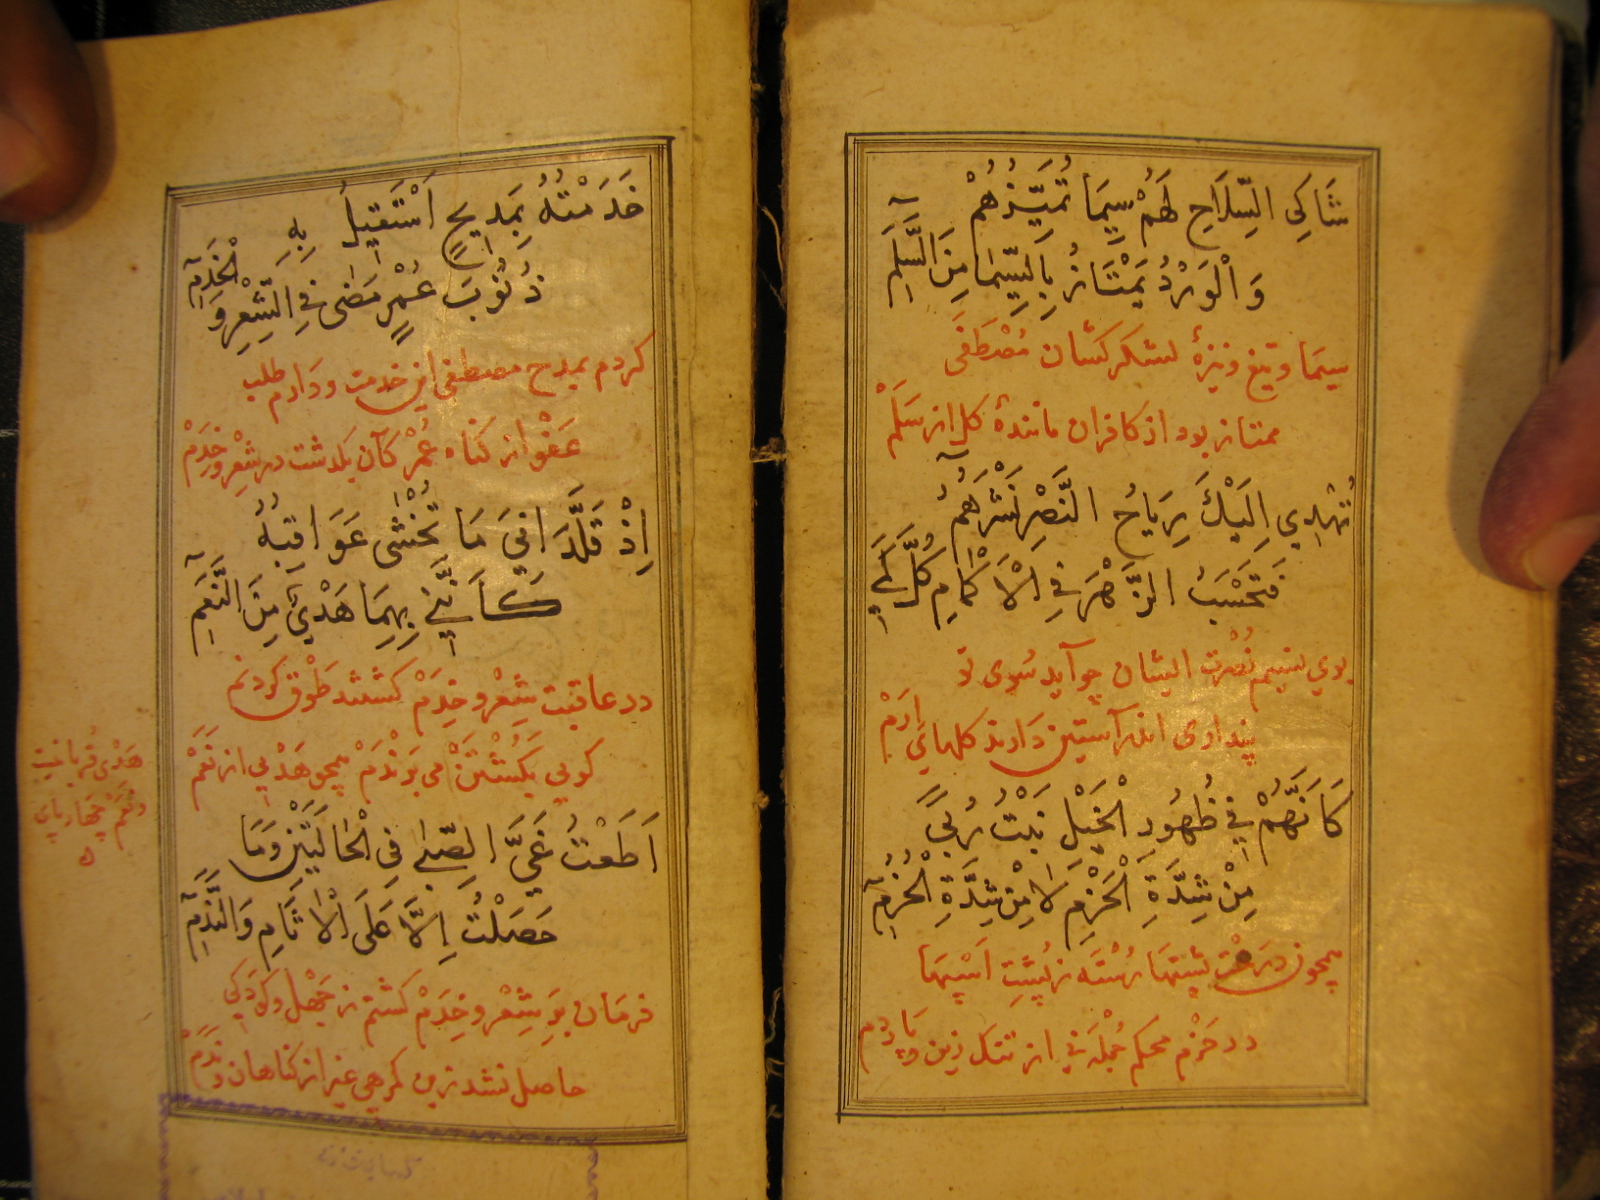 شَاكِي السِّلَاحِ لَهُمْ سِيمَا تُمَيِّزُهُمْ
وَالْوَرْدُ يَمْتَازُ بِالسِّيمَا مِنَ السَّلَمِ
سیما و تیغ و نیزهٔ لشکرکشان مُصْطَفَی
ممتاز بود از کافران مانندهٔ کل از سَلَمْ
تُهْدِي اِلَيْكَ رِيَاحُ النَّصْرِ نَشْرَهُمُ
فَتَحْسَبُ الزَّهْرَ فِي الْاَكْمَامِ كُلَّ كَمِي
بوی نسیم نُصْرت ایشان چو آید سُوی تو
پنداری اندر آستین دَارند کلهای اِرَمْ
كَاَنَّهُمْ فِي ظُهُورِ الْخَيْلِ نَبْتُ رُبًى
مِنْ شِدَّةِ الْحَزْمِ لَا مِنْ شِدَّةِ الْحُزُمِ
همچون درخت پشتها رُسْتَه ز پُشتِ اَسْپهَا
در حَزْم محکم جُمْلَه نی از تنک زین و پاردم
خَدَمْتُهُ بِمَدِيحٍ اَسْتَقِيلُ بِهِ
ذُنُوبَ عُمْرٍ مَضٰى فِي الشِّعْرِ وَالْخِدَمِ
کردم بمدح مصطفی این خدمت و دَارم طلب
عَفْو از کناه عُمْر کآن بکذشت در شِعْر و خِدَمْ
اِذْ قَلَّدَانِيَ مَا تُخْشٰى عَوَاقِبُهُ
كَاَنَّنِي بِهِمَا هَدْيٌ مِنَ النَّعَمِ
در عاقبت شِعْر و خِدَمْ کشتند طَوْق کردنم
کویی بکُشْتَنْ می بَرَنْدَمْ همچو هَدْیی از نَعَمْ
هَدْی قُربانیت
و نَعَمْ چهارپای
اَطَعْتُ غَيَّ الصِّبٰى فِي الْحَالَتَيْنِ وَمَا
حَصَلْتُ اِلَّا عَلَى الْاٰثَامِ وَالنَّدَمِ
فرمان بَرِ شِعْر و خِدَمْ کشتم ز جَهْل و کودکی
حاصل نشد زین کرهی غیر از کناهان و نَدَمْ